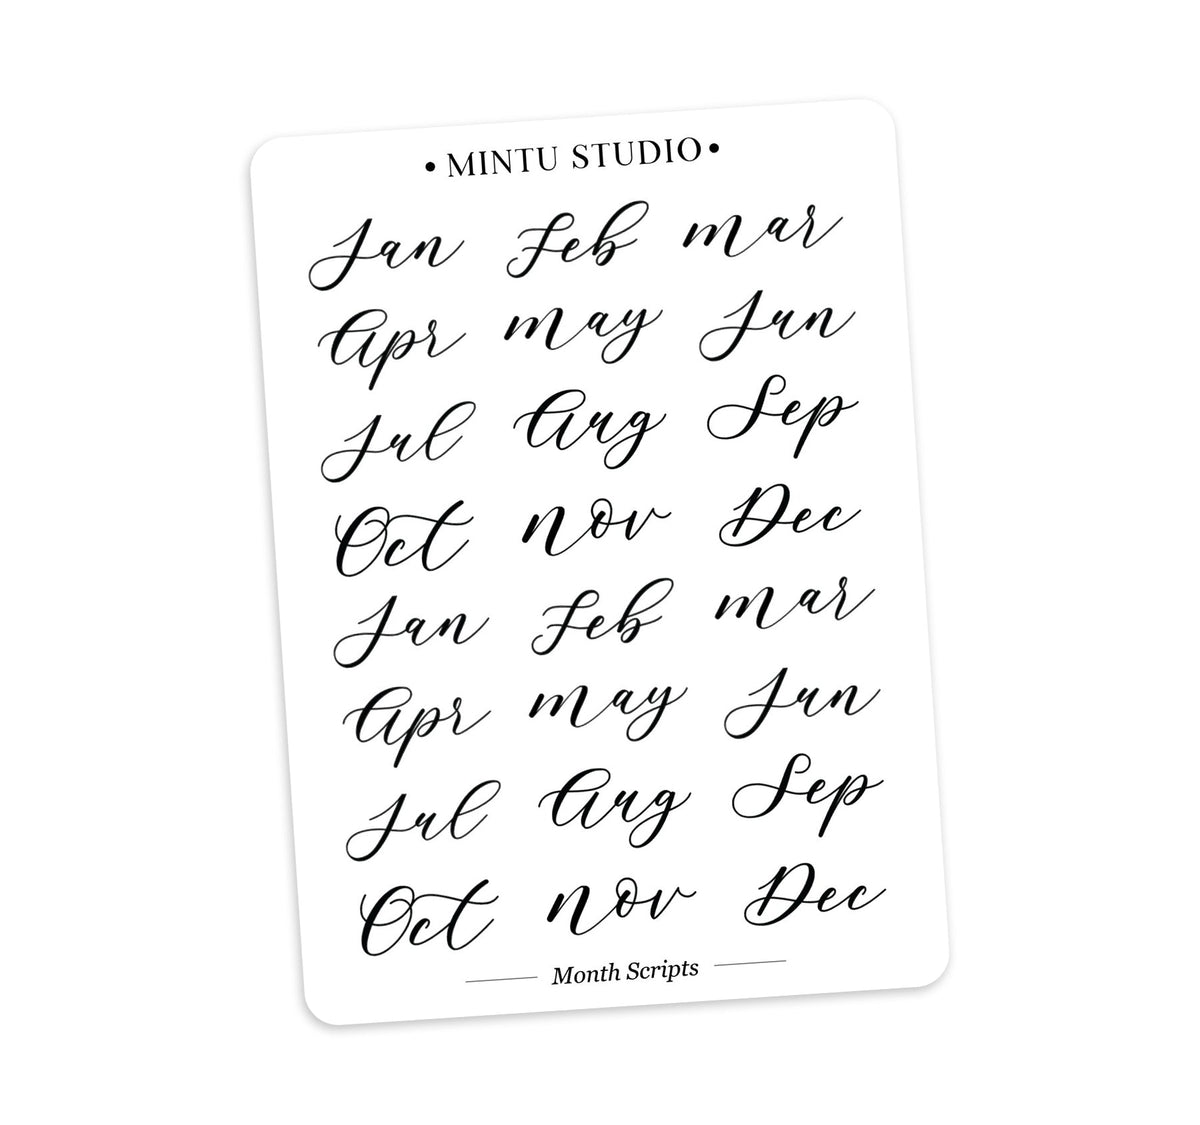 • MINTU STUDIO •
Jan Feb mar
Apr may Jun
Jul Aug Sep
Oct nov Dec
Jan Feb mar
Apr may Jun
Jul Aug Sep
Oct nov Dec
Month Scripts